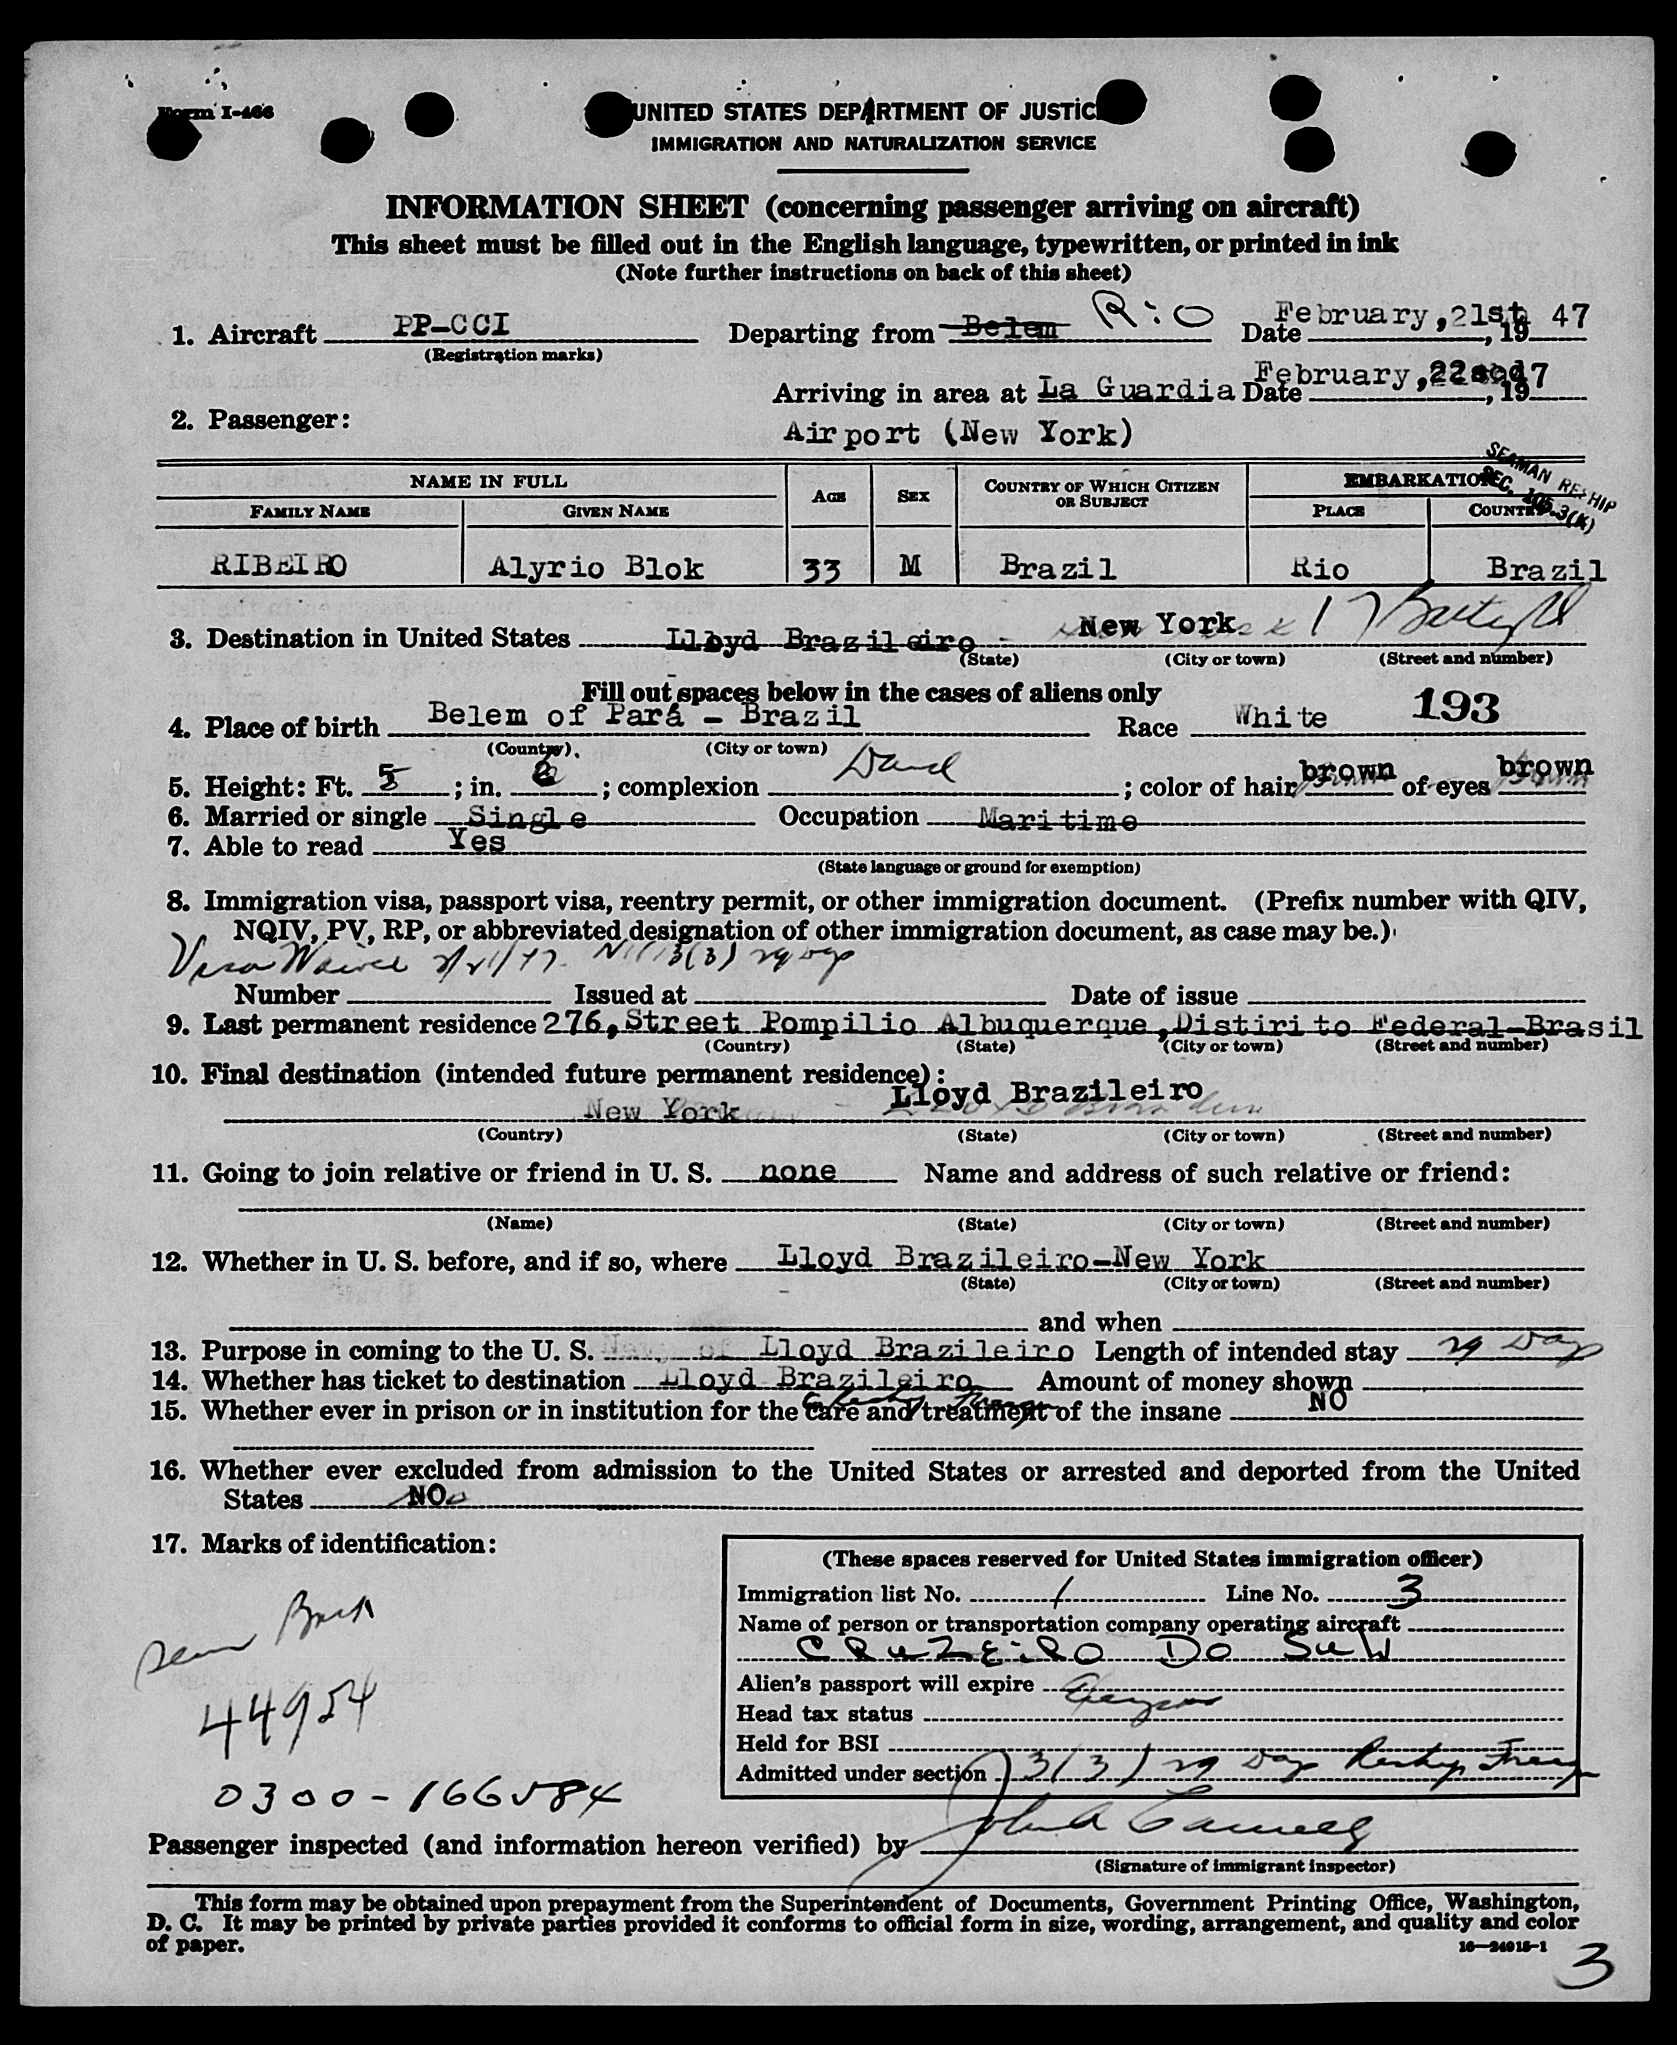 Form I-466
UNITED STATES DEPARTMENT OF JUSTICE
IMMIGRATION AND NATURALIZATION SERVICE
INFORMATION SHEET (concerning passenger arriving on aircraft)
This sheet must be filled out in the English language, typewritten, or printed in ink
(Note further instructions on back of this sheet)
1. Aircraft PP-CCI Departing from Belem Rio Date February, 21st, 19 47
(Registration marks)
Arriving in area at La Guardia Date February, 22nd, 19 47
2. Passenger: Airport (New York)
SEAMAN RESHIP
SEC. 105.3(K)
NAME IN FULL AGE SEX COUNTRY OF WHICH CITIZEN OR SUBJECT EMBARKATION
FAMILY NAME GIVEN NAME PLACE COUNTRY
RIBEIRO Alyrio Blok 33 M Brazil Rio Brazil
3. Destination in United States Lloyd Brazileiro - New York 17 Battery Pl
(State) (City or town) (Street and number)
Fill out spaces below in the cases of aliens only
4. Place of birth Belem of Pará - Brazil Race White 193
(Country) (City or town)
5. Height: Ft. 5; in. 6; complexion Dark; color of hair brown of eyes brown
6. Married or single Single Occupation Maritime
7. Able to read Yes
(State language or ground for exemption)
8. Immigration visa, passport visa, reentry permit, or other immigration document. (Prefix number with QIV,
NQIV, PV, RP, or abbreviated designation of other immigration document, as case may be.)
Visa Waived 2/21/47 3(3) 29 Days
Number Issued at Date of issue
9. Last permanent residence 276, Street Pompilio Albuquerque, Distirito Federal-Brasil
(Country) (State) (City or town) (Street and number)
10. Final destination (intended future permanent residence):
New York Lloyd Brazileiro
(Country) (State) (City or town) (Street and number)
11. Going to join relative or friend in U. S. none Name and address of such relative or friend:
(Name) (State) (City or town) (Street and number)
12. Whether in U. S. before, and if so, where Lloyd Brazileiro-New York
(State) (City or town) (Street and number)
and when
13. Purpose in coming to the U. S. of Lloyd Brazileiro Length of intended stay 29 Days
14. Whether has ticket to destination Lloyd Brazileiro Amount of money shown
15. Whether ever in prison or in institution for the care and treatment of the insane NO
16. Whether ever excluded from admission to the United States or arrested and deported from the United
States NO
17. Marks of identification:
Seaman Book
44954
0300-166584
(These spaces reserved for United States immigration officer)
Immigration list No. 1 Line No. 3
Name of person or transportation company operating aircraft
CRUZEIRO DO SUL
Alien's passport will expire
Head tax status
Held for BSI
Admitted under section 3(3) 29 Days Reship Foreign
Passenger inspected (and information hereon verified) by John A
(Signature of immigrant inspector)
This form may be obtained upon prepayment from the Superintendent of Documents, Government Printing Office, Washington,
D. C. It may be printed by private parties provided it conforms to official form in size, wording, arrangement, and quality and color
of paper.
16-24015-1
3